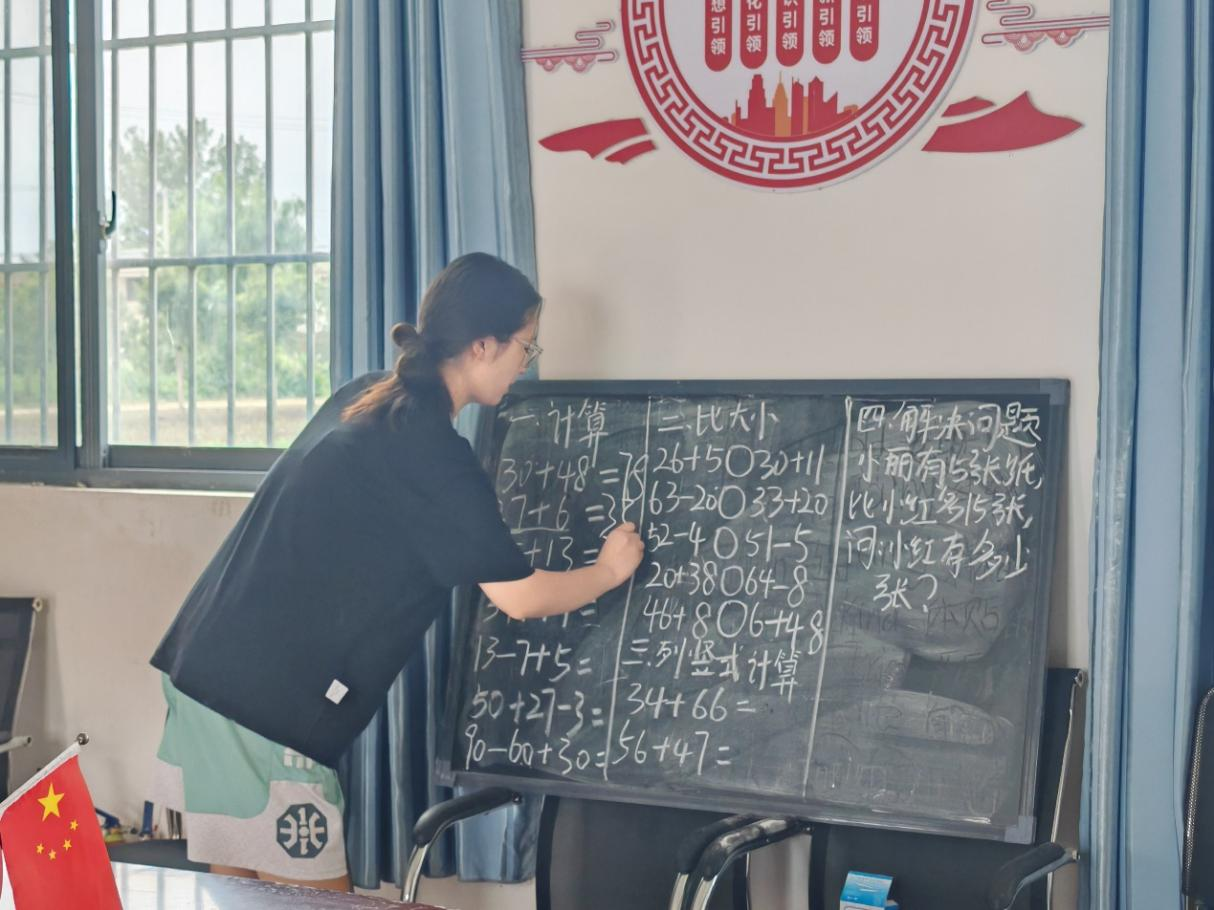 想引领
化引领
识引领
新引领
引领
一.计算
30+48=78
7+6=3
+13=
13-7+5=
50+27-3=
90-60+30=
二.比大小
26+5○30+11
63-20○33+20
52-4○51-5
20+38○64-8
46+8○6+48
三.列竖式计算
34+66=
56+47=
四.解决问题
小丽有15张纸,
比小红多15张,
问小红有多少
张?